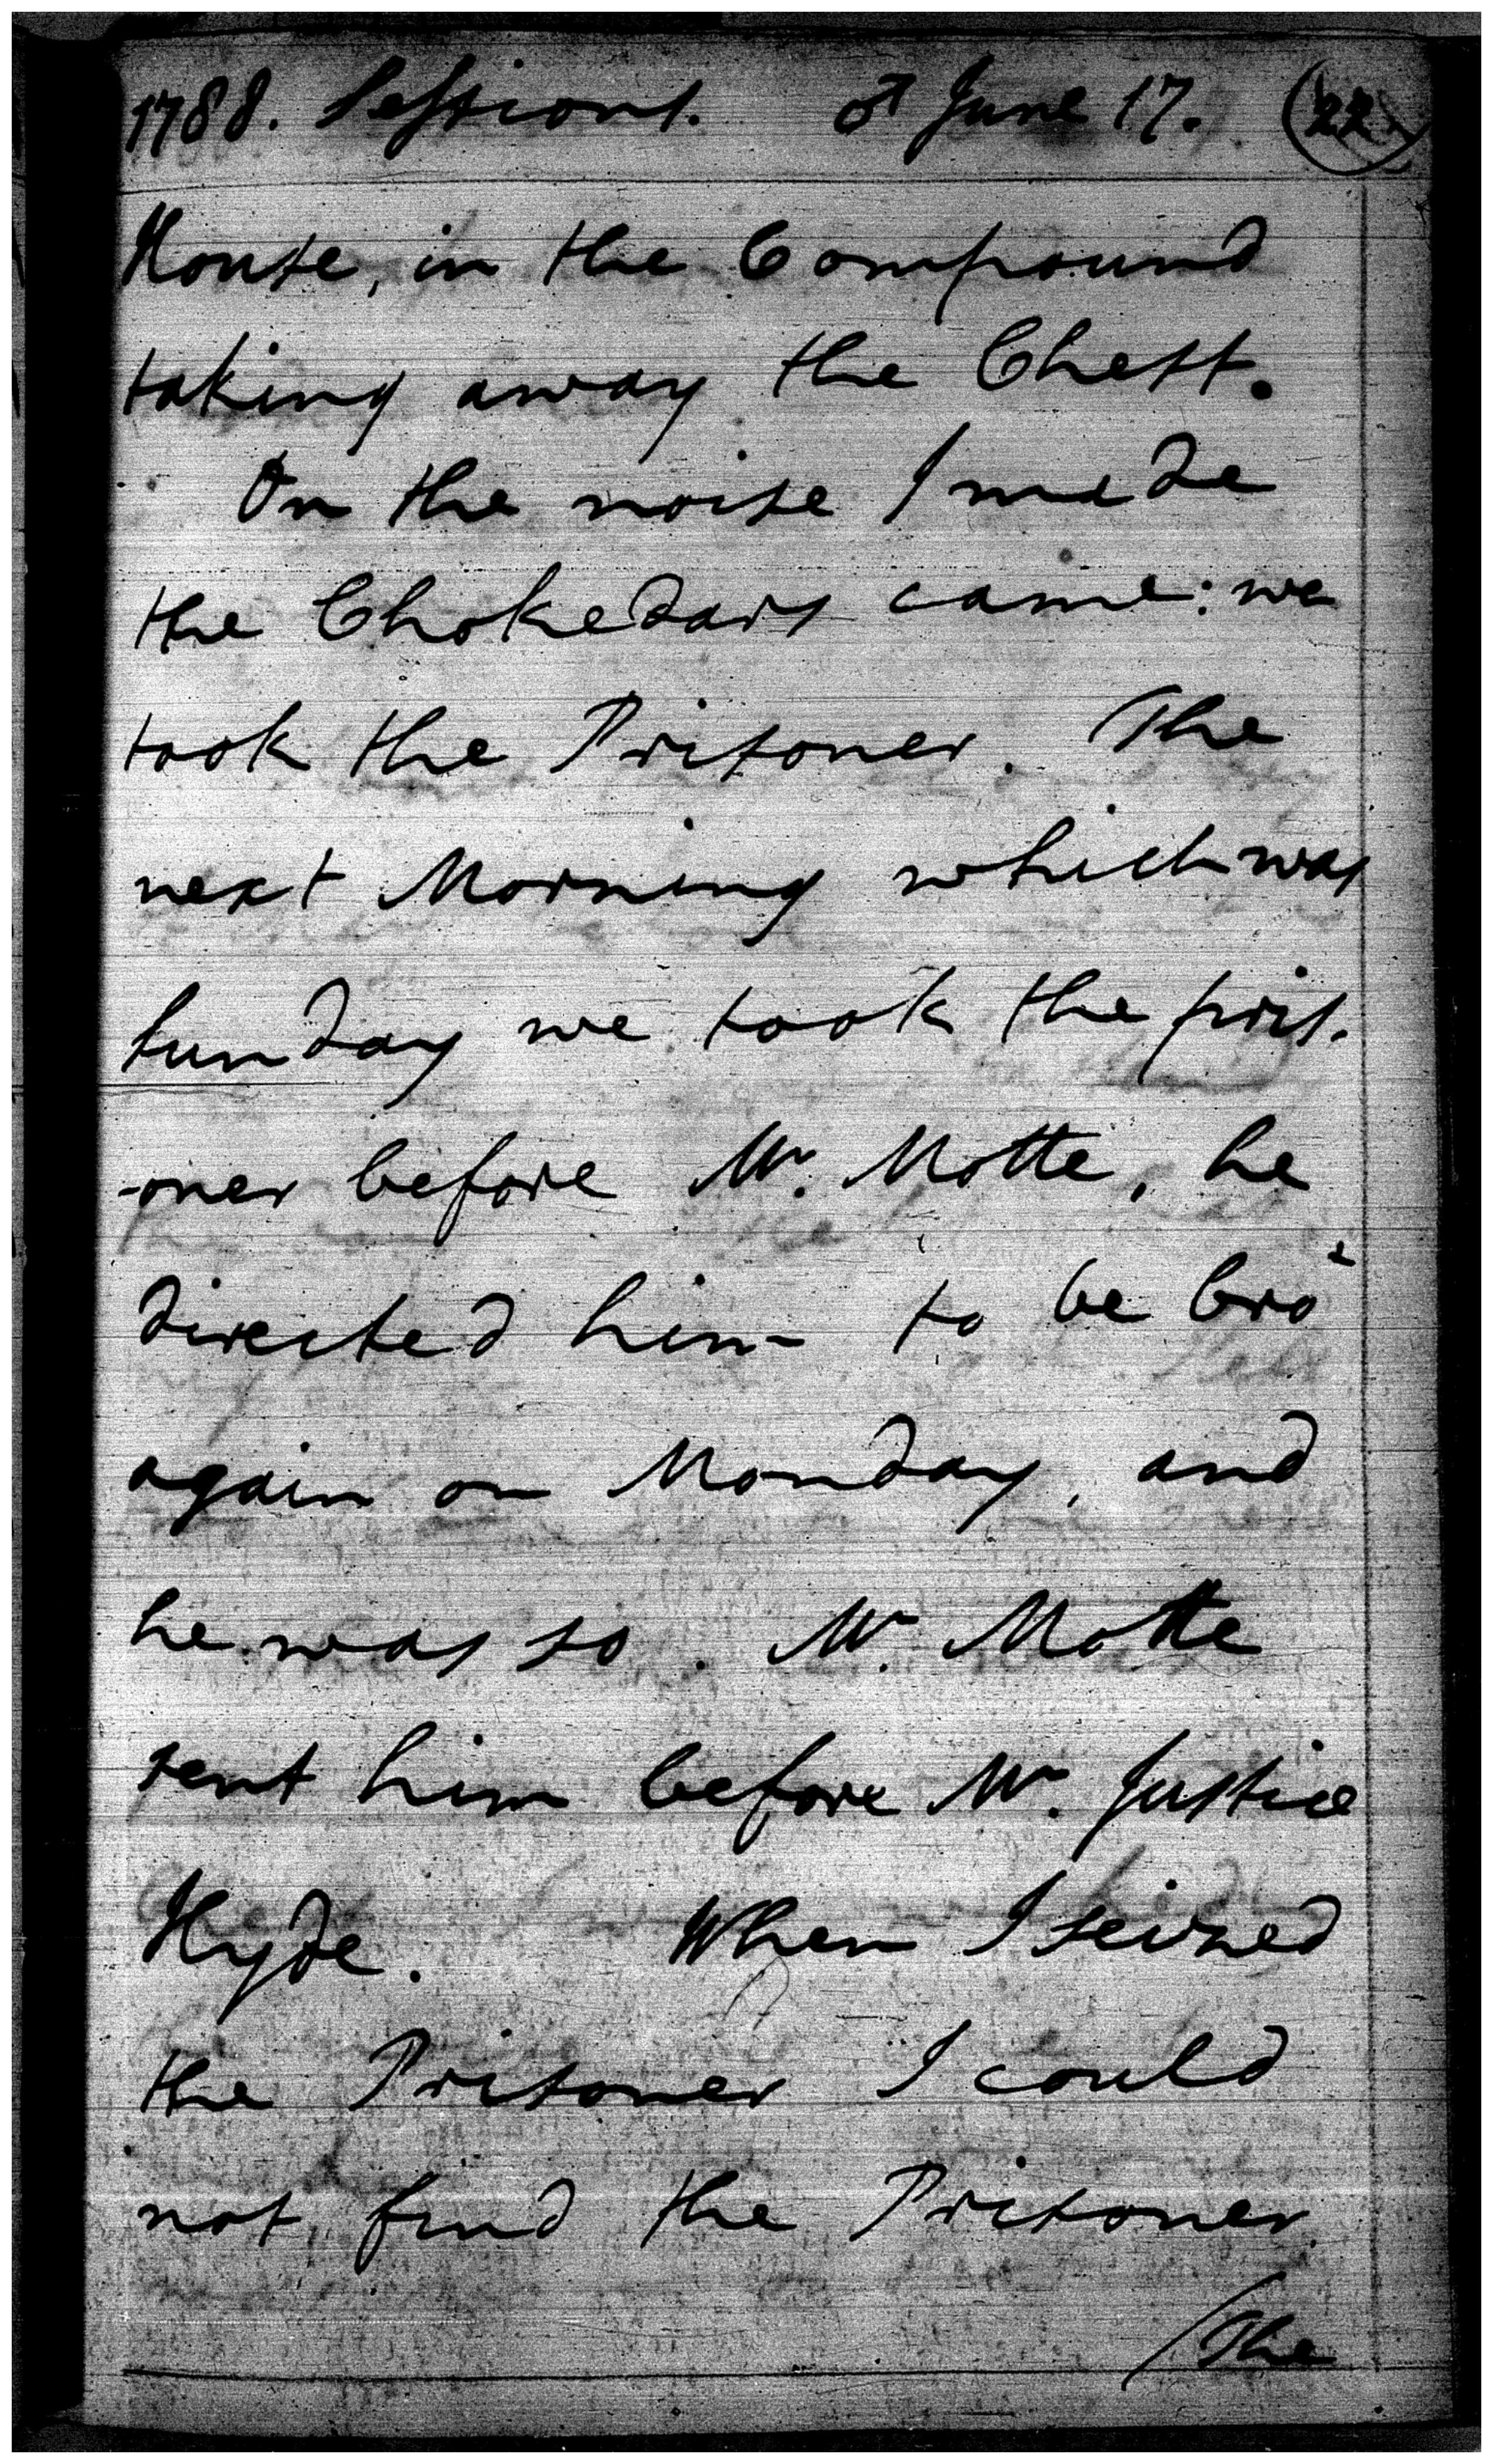 1788. Sessions. ♂ June 17. (22)
House, in the Compound
taking away the Chest.
On the noise I made
the Chokedars came: we
took the Prisoner. The
next Morning which was
Sunday we took the pris-
-oner before Mr. Motte, he
directed him to be bro^t
again on Monday, and
he was so. Mr. Motte
sent him before Mr. Justice
Hyde. When I seized
the Prisoner I could
not find the Prisoner
(The